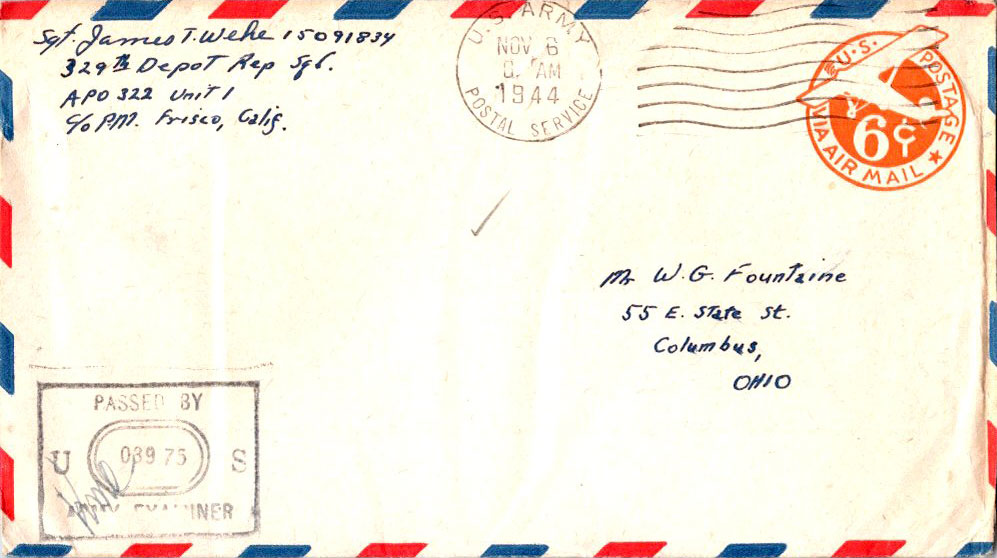 Sgt. James T. Wehe 15091834
329th Depot Rep Sqd.
APO 322 Unit 1
c/o P.M. Frisco, Calif.
U.S. ARMY
NOV 6
AM
1944
POSTAL SERVICE
U.S. POSTAGE
6¢
VIA AIR MAIL
Mr W. G. Fountaine
55 E. State St.
Columbus,
OHIO
PASSED BY
U 03975 S
ARMY EXAMINER